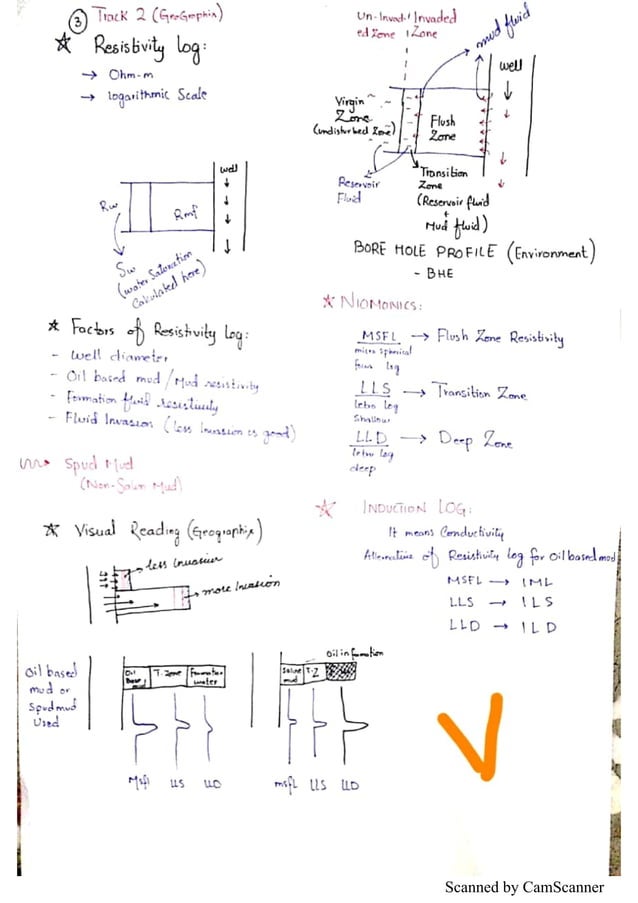 ③ Track 2 (GeoGraphix)
☆ Resistivity log:
→ Ohm-m
→ logarithmic Scale
well
Rw
Rmf
Sw
(water Saturation
Calculated here)
☆ Factors of Resistivity log:
- well diameter
- Oil based mud / Mud resistivity
- Formation fluid resistivity
- Fluid Invasion (less Invasion is good)
Spud Mud
(Non-Salin Mud)
☆ Visual Reading (Geographix)
less invasion
more Invasion
Oil based
mud or
Spud mud
Used
Oil Base mud
T. Zone
Formation water
Msfl LLS LLD
Oil in formation
Saline mud
T-Z
msfl LLS LLD
Un-Invaded Zone
Invaded Zone
mud fluid
well
Virgin
Zone
(undisturbed Zone)
Flush
Zone
Reservoir
Fluid
Transition
Zone
(Reservoir fluid
+
Mud fluid)
BORE HOLE PROFILE (Environment)
- BHE
☆ NIOMONICS:
MSFL → Flush Zone Resistivity
micro spherical
focus log
LLS → Transition Zone
letro log
Shallow
LLD → Deep Zone
letro log
deep
☆ INDUCTION LOG:
It means Conductivity
Alternative of Resistivity log for Oil based mud
MSFL → IML
LLS → ILS
LLD → ILD
Scanned by CamScanner